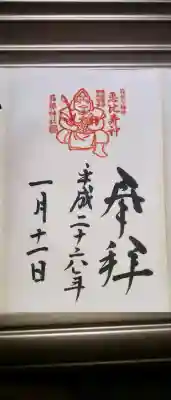 恵比寿神
奉拝
平成二十六年
一月十一日